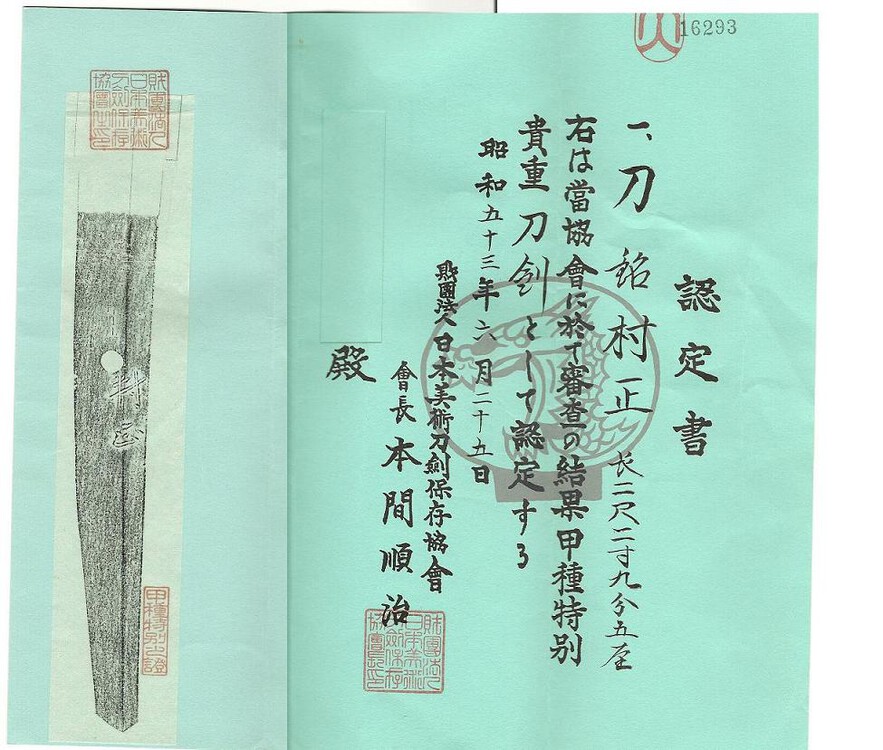 16293
認定書
一、刀 銘 村正 長二尺二寸九分五厘
右は當協會に於て審査の結果甲種特別
貴重刀劍として認定する
昭和五十三年六月二十五日
財團法人日本美術刀劍保存協會
會長 本間順治
殿
財團法人
日本美術
刀劍保存
協會之印
村正
甲種特別之證
財團法人
日本美術
刀劍保存
協會長印